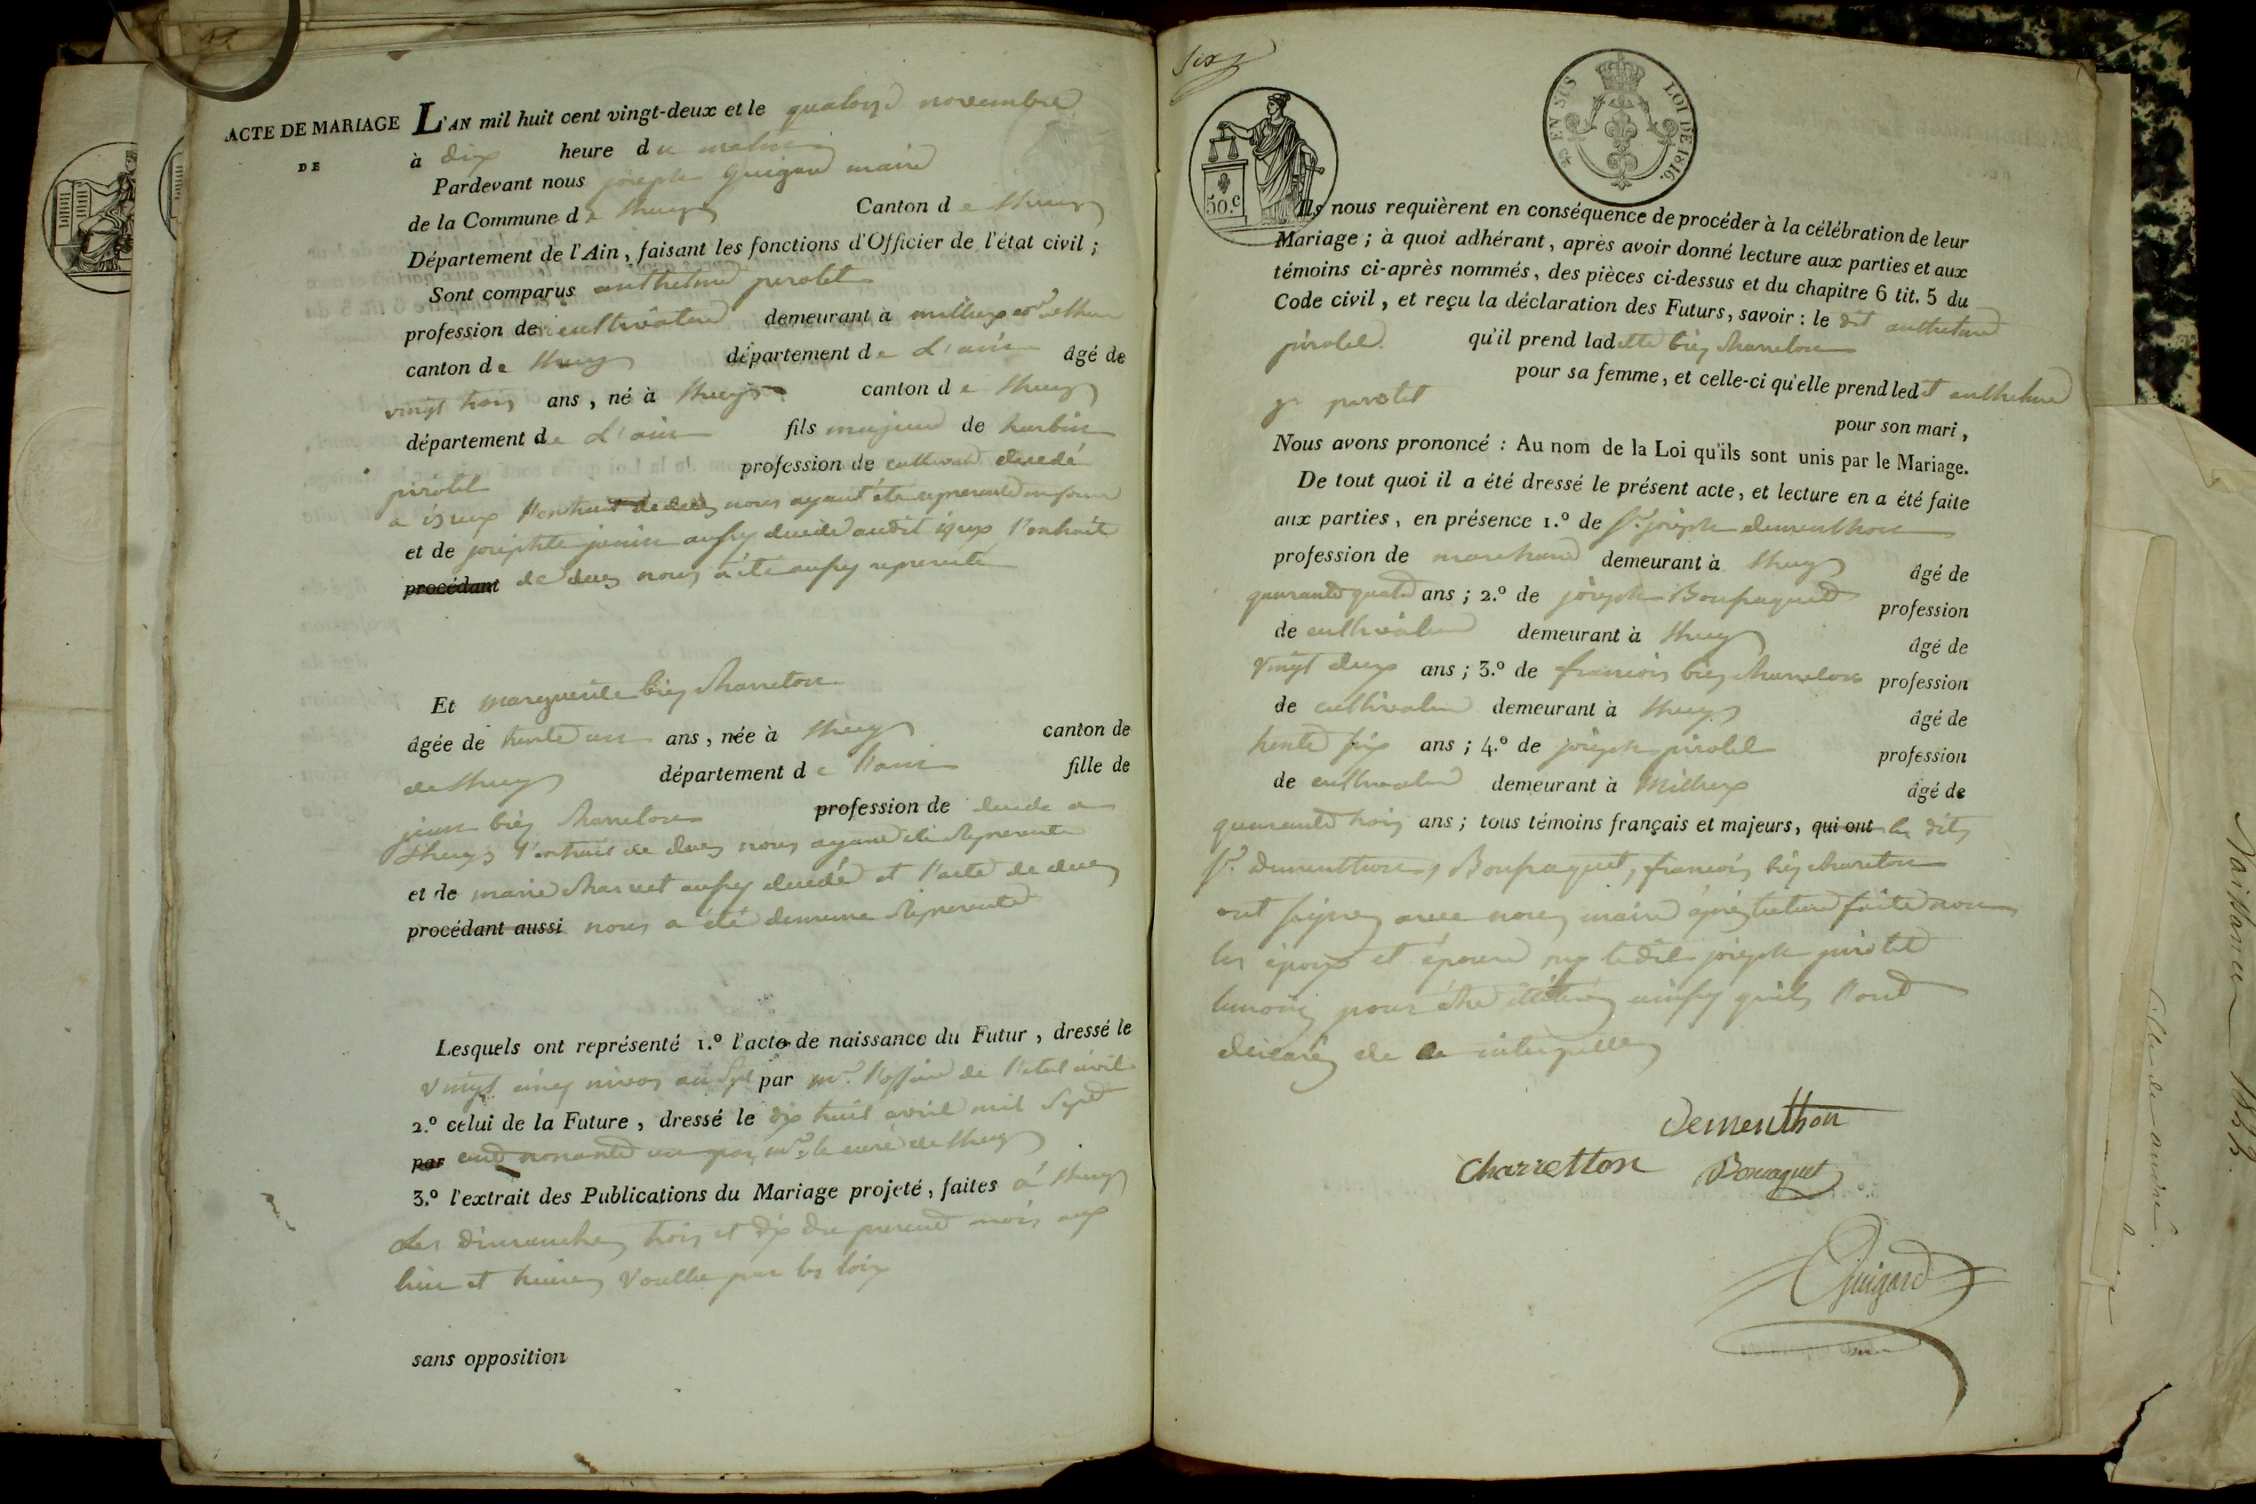 ACTE DE MARIAGE
DE
L'AN mil huit cent vingt-deux et le quatorze novembre
à dix heure du matin
Pardevant nous joseph Guigard maire
de la Commune de Lhuys Canton de Lhuys
Département de l'Ain, faisant les fonctions d'Officier de l'état civil;
Sont comparus anthelme pirolet
profession de cultivateur demeurant à millieux
canton de Lhuys département de L'ain âgé de
vingt trois ans, né à Lhuys canton de Lhuys
département de L'ain fils majeur de
pirolet profession de cultivateur decedé
a izieux L'extrait de deces nous ayant été representé
et de josephte aussy decedée audit izieux l'extrait
procédant de deces nous a été aussy representé
Et marguerite biez charreton
âgée de trente un ans, née à Lhuys canton de
de Lhuys département de l'ain fille de
jean biez charreton profession de decede a
Lhuys l'extrait de deces nous ayant été représenté
et de marie charvet aussy decedée et l'acte de deces
procédant aussi nous a été de meme représenté
Lesquels ont représenté 1.º l'acte de naissance du Futur, dressé le
vingt cinq nivos an sept par mr. l'officier de l'etat civil
2.º celui de la Future, dressé le dix huit avril mil sept
par cent nonante un par mr. le curé de Lhuys
3.º l'extrait des Publications du Mariage projeté, faites à Lhuys
les dimanches trois et dix du present mois aux
lieu et heures voullu par les loix
sans opposition
six
50.c
EN SUS
LOI DE 1816.
Ils nous requièrent en conséquence de procéder à la célébration de leur
Mariage; à quoi adhérant, après avoir donné lecture aux parties et aux
témoins ci-après nommés, des pièces ci-dessus et du chapitre 6 tit. 5 du
Code civil, et reçu la déclaration des Futurs, savoir: le dit anthelme
pirolet qu'il prend ladette biez charreton
pour sa femme, et celle-ci qu'elle prend ledit anthelme
pirolet pour son mari,
Nous avons prononcé: Au nom de la Loi qu'ils sont unis par le Mariage.
De tout quoi il a été dressé le présent acte, et lecture en a été faite
aux parties, en présence 1.º de Sr. joseph dementhon
profession de marchand demeurant à Lhuys âgé de
quarante quatre ans; 2.º de joseph Bousraquet profession
de cultivateur demeurant à Lhuys âgé de
vingt deux ans; 3.º de francois biez charreton profession
de cultivateur demeurant à Lhuys âgé de
trente six ans; 4.º de joseph pirolet profession
de cultivateur demeurant à Millieux âgé de
quarante trois ans; tous témoins français et majeurs, qui ont les dits
Sr. Dementhon, francois biez charreton
ont signez avec nous maire après lecture faite non
les époux et épouse ny le dit joseph pirolet
temoins pour etre illetérés ainsy quils l'ont
declarés de ce interpellés
Dementhon
Charretton
Guigard
Naissance 1822.